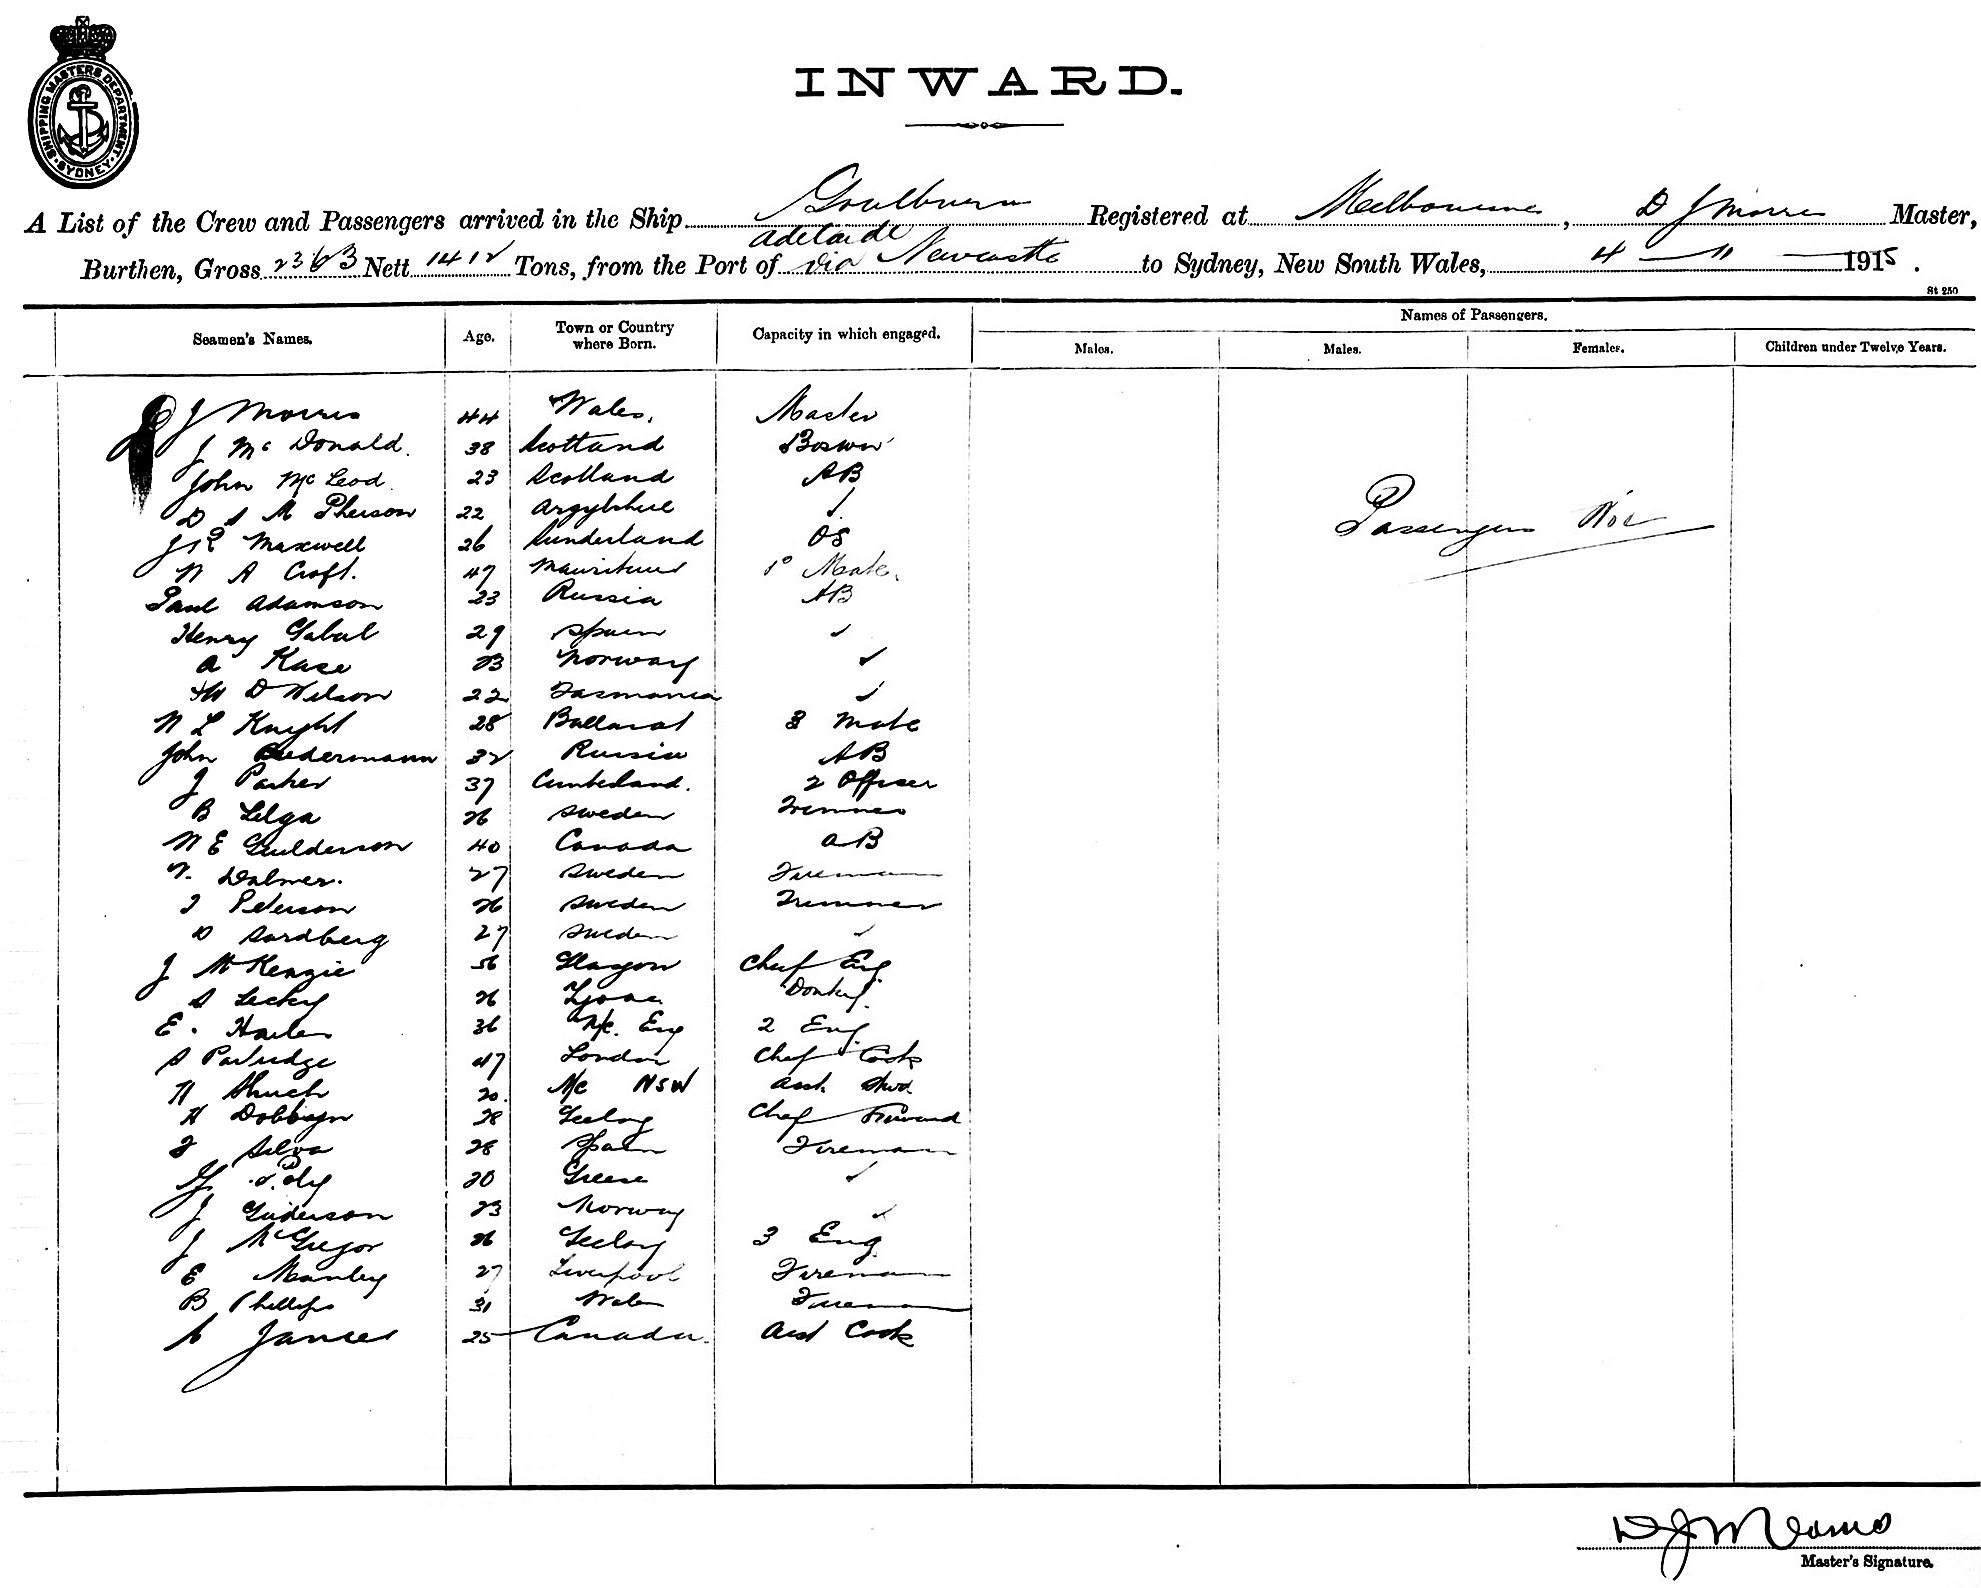 SHIPPING MASTERS DEPARTMENT · SYDNEY ·
INWARD.
A List of the Crew and Passengers arrived in the Ship Goulburn Registered at Melbourne, D J Morris Master,
Burthen, Gross 2363 Nett 1412 Tons, from the Port of Adelaide via Newcastle to Sydney, New South Wales, 4 – 11 – 1915.
St 250
Seamen's Names. Age. Town or Country where Born. Capacity in which engaged. Names of Passengers.
Males. Males. Females. Children under Twelve Years.
D J Morris 44 Wales. Master
J McDonald. 38 Scotland Boswn
John McLeod. 23 Scotland AB
D S McPherson 22 Argylshire ✓
J R Maxwell 26 Sunderland OS
Passengers Nil
N A Croft. 47 Mauritius 1º Mate.
Paul Adamson 23 Russia AB
Henry Gabul 29 Spain ✓
A Kase 23 Norway ✓
W D Wilson 22 Tasmania ✓
N L Knight 28 Ballarat 3 Mate
John Biedermann 32 Russia AB
J Parker 37 Cumberland. 2 Officer
B Lilga 26 Sweden Trimmer
N E Gulderson 40 Canada AB
T. Dalmer. 27 Sweden Fireman
J Peterson 26 Sweden Trimmer
D Sordberg 27 Sweden ✓
J McKenzie 56 Glasgow Chief Eng
S Lecky 26 Donkey
E. 36 N/c. Eng 2 Eng.
S Partridge 47 London Chief Cook
H 20. N/c NSW Asst. Stwd.
H Dobbyn 28 Geelong Chef Steward
J Silva 28 Spain Fireman
Poly 20 Greese ✓
J Gunderson 23 Norway ✓
J McGregor 26 Geelong 3 Eng.
E Manley 27 Liverpool Fireman
B Phillips 31 Wales Fireman
A James 25 Canada. Asst Cook
D J Morris
Master's Signature.